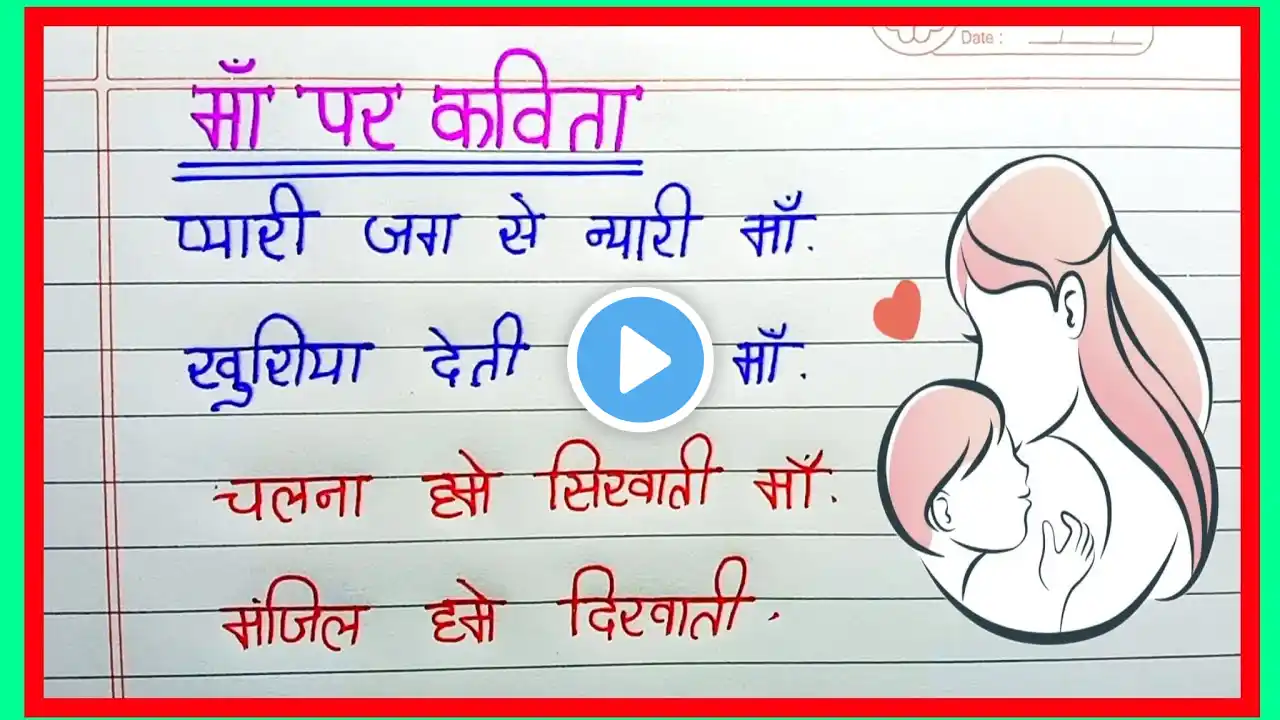 Date :
माँ पर कविता
प्यारी जग से न्यारी माँ.
खुशिया देती माँ .
चलना हमे सिखाती माँ.
मंजिल हमे दिखाती .